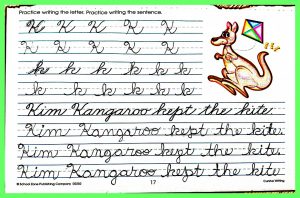 Practice writing the letter. Practice writing the sentence.
K K K K K K
K K K K K K
k k k k k k k
k k k k k k
Kim Kangaroo kept the kite.
Kim Kangaroo kept the kite.
Kim Kangaroo kept the kite.
Kim Kangaroo kept the kite.
© School Zone Publishing Company 17 Cursive Writing